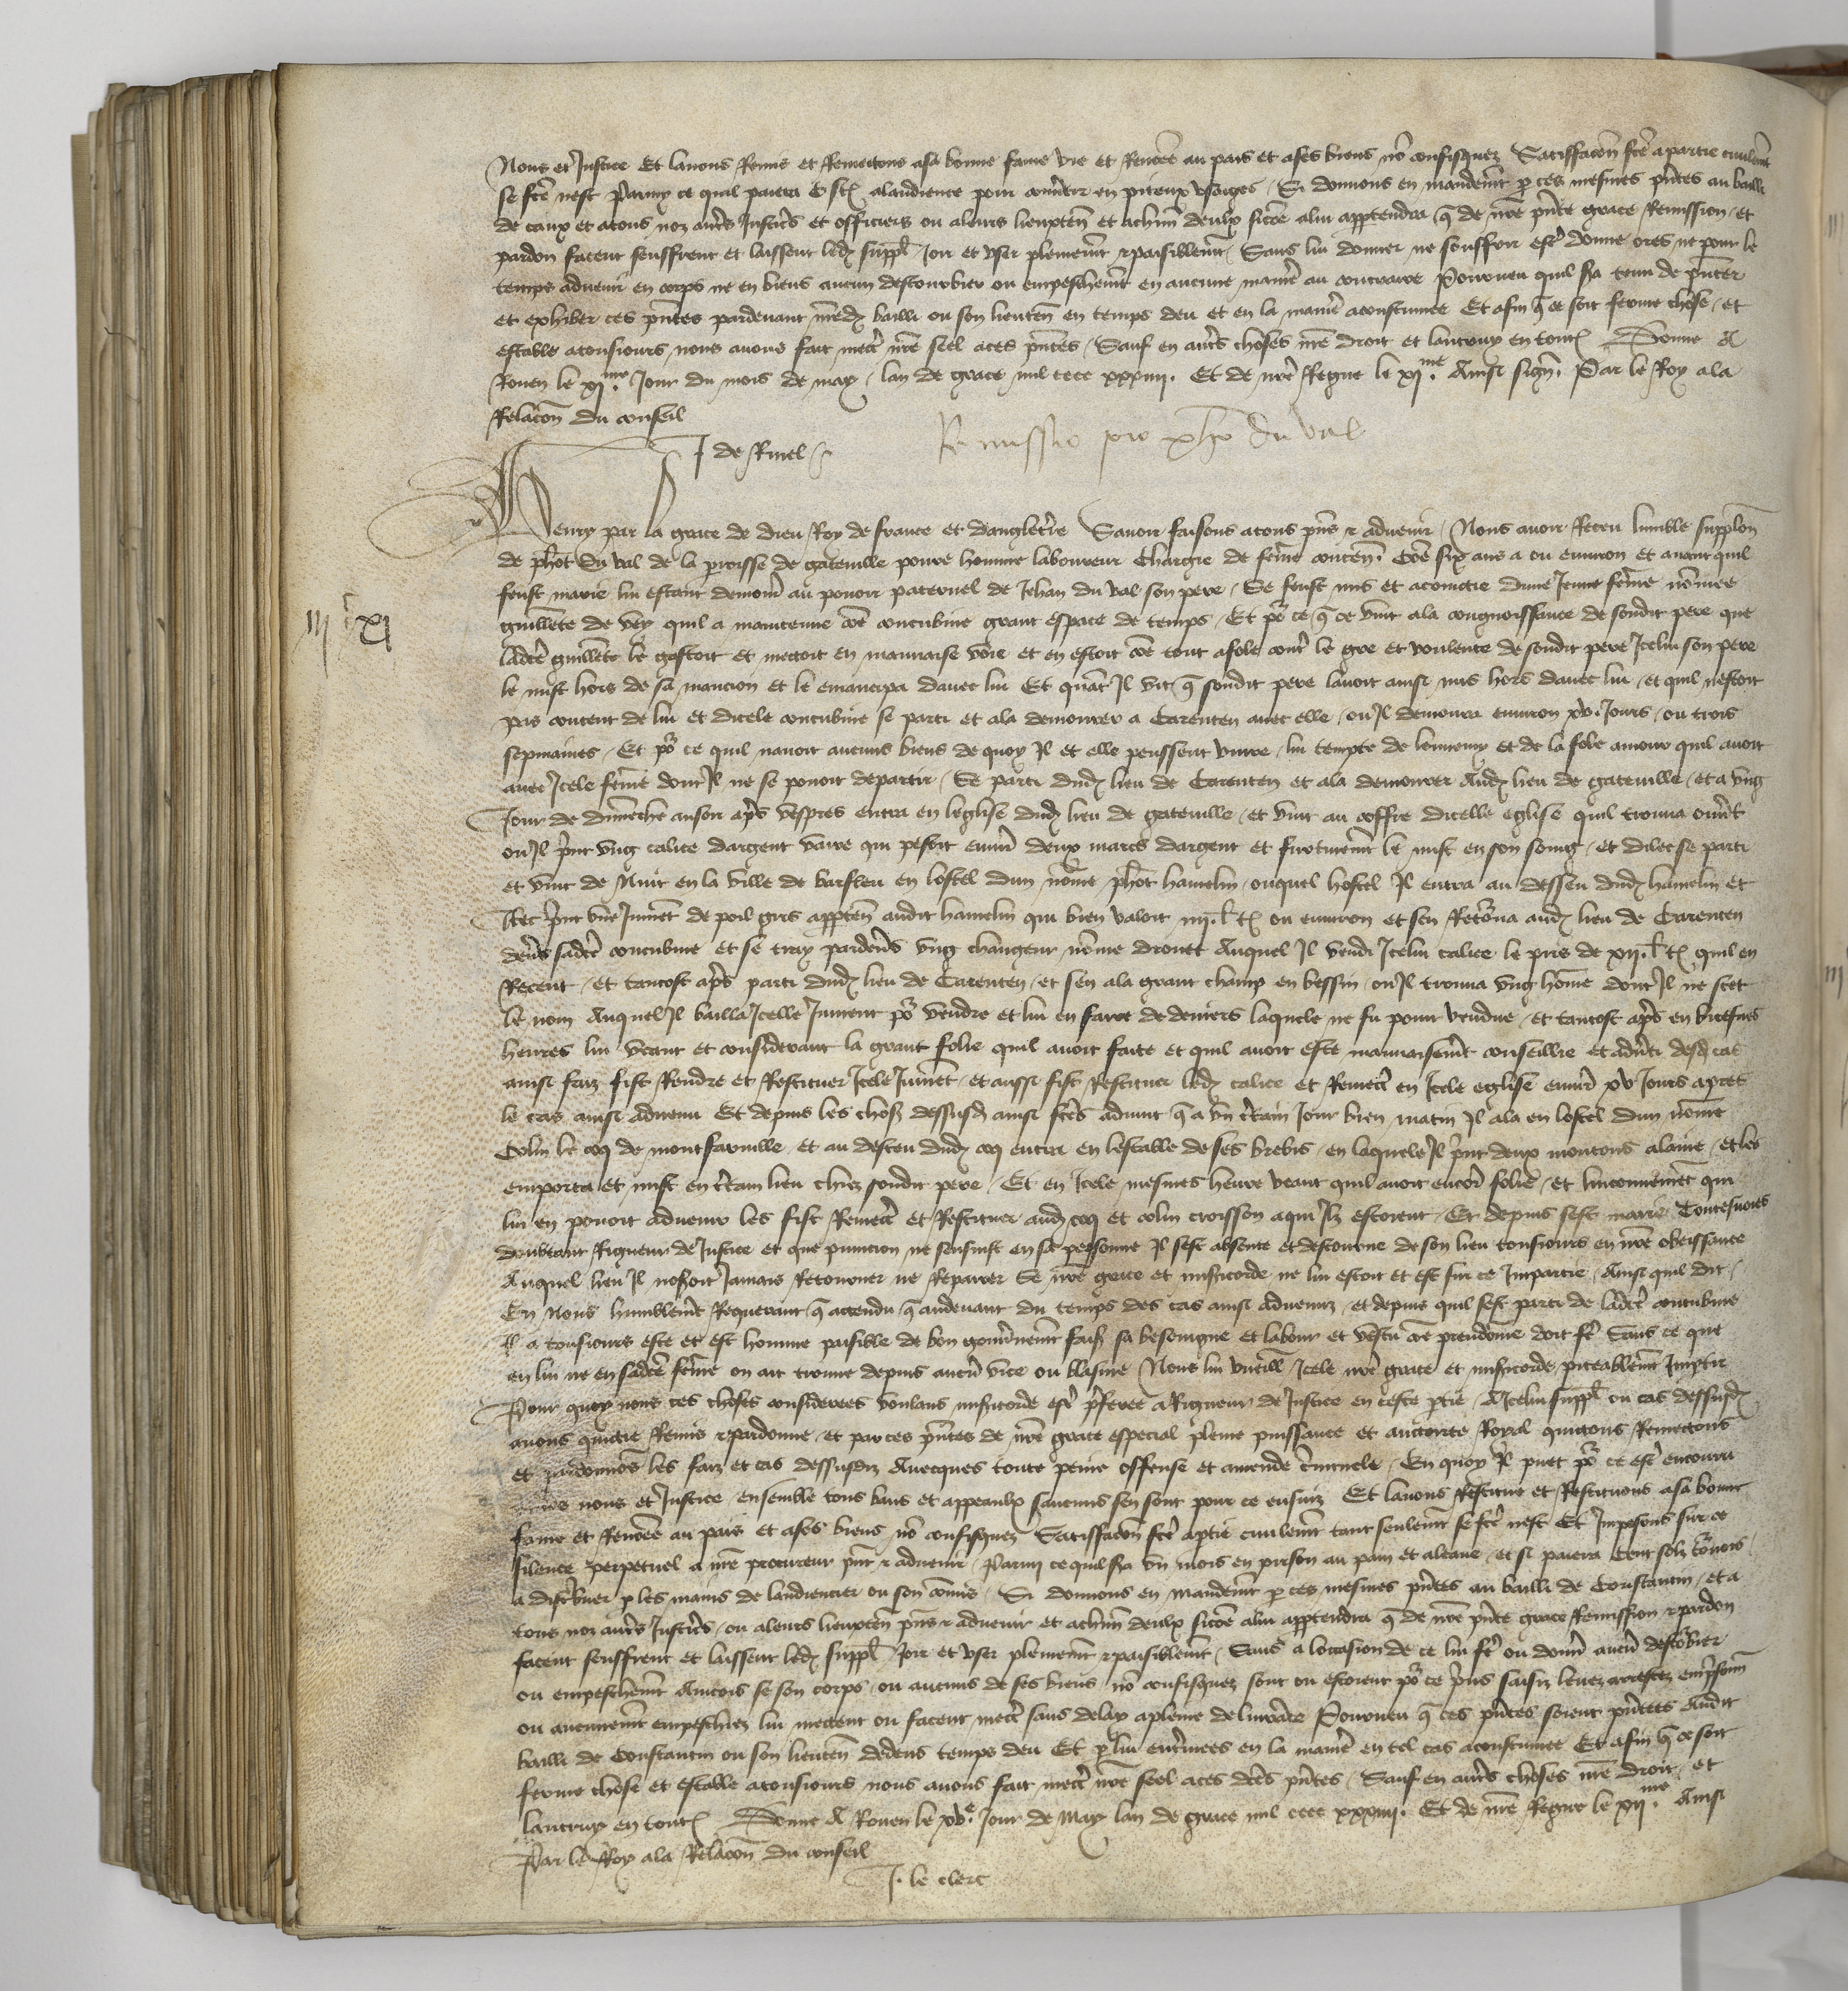 Nous et Justice Et lavons Remis et Remettons asa bonne fame vie et Renōēe au pais et ases biens nō confisquez Satisfacoñ fc̄e a partie civilem̄t
se fc̄e nest Parmy ce quil paiera alaudience pour cōvertir en piteux usaiges Si donnons en mandem̄t p ces mesmes p̄ntes au bailli
de caux et atous noz aut̄s Justic̄s et officiers ou aleurs lieuxten̄ et achūn deulx sicōe alui apptendra q̄ de nr̄e p̄nte grace Remission et
pardon facent seuffrent et laissent led suppl̄ Joir et user plenem̄t z paisiblem̄t Sans lui donner ne souffrir est̄ donne ores ne pour le
temps advenir en corps ne en biens aucun destourbier ou empeschem̄t en aucune manie au contraire Pourveu quil s̄a tenu de p̄nter
et exhiber ces p̄ntes pardevant nr̄ed bailli ou son lieuten̄ en temps deu et en la manie acoustumee Et afin q̄ ce soit ferme chose et
estable atousiours nous avons fait mect̄ nr̄e seel aces p̄ntes Sauf en aut̄s choses nr̄e droit et lautruy en tout Donne A
Rouen le xi.me Jour du mois de may lan de grace mil cccc xxxiiii. Et de nr̄e Regne le xii.me Ainsi sign̄. Par le Roy ala
Relacōn du conseil
J de Rinel
Remissio pro pho du val
Henry par la grace de dieu Roy de france et dangleterre Savoir faisons atous p̄ns z advenir Nous avoir Receu lumble supplicōn
de phōt du val de la proisse de gateville povre homme laboureur chargie de fēme conten̄. Cōe six ans a ou environ et avant quil
feust marie lui estant demoūr̄ au povoir paternel de Jehan du val son pere Se feust mis et acointie dune Jeune fēme nōmee
guillēte de vey quil a maintenue cōe concubine grant espace de temps Et po ce q̄ ce vint ala congnoissance de sondit pere que
ladcē guillēte le gastoit et mettoit en mauvaise voie et en estoit cōe tout afole cont̄ le gre et voulente de sondit pere Icelui son pere
le mist hors de sa mancion et le emancipa davec lui Et quāt Il vit q̄ sondit pere lavoit ainsi mis hors davec lui et quil nestoit
pas content de lui et dicele concubine se parti et ala demourer a Carenten avec elle ou Il demoura environ xv. Jours ou trois
sepmaines Et po ce quil navoit aucuns biens de quoy Il et elle peussent vivre lui tempte de lennemy et de la fole amour quil avoit
avec Icele fēme dont Il ne se povoit departir Se parti dud lieu de Carenten et ala demourer Aud lieu de gateville et a ung
Jour de dimenche ausoir ap̄s vespres entra en leglise dud lieu de gateville et vint au coffre dicelle eglise quil trouva ouv̄t
ou Il p̄int ung calice dargent vairre qui pesoit envirō deux marcs dargent et furtivem̄t le mist en son soing et dilec se parti
et vint de Nuit en la ville de barfleu en lostel dun nōme phōt hamelin ouquel hostel Il entra au desseu dud hamelin et
Ilec p̄int une Jumēt de poil gris apptēn audit hamelin qui bien valoit iiii.l t ou environ et sen Retourna aud lieu de Carenten
dev̄s sadcē concubine et se tray pardev̄s ung changeur nōme drouet Auquel Il vendi Icelui calice le pris de xii.l t quil en
Receut et tantost ap̄s parti dud lieu de Carenten et sen ala grant champ en bessin ou Il trouva ung hōme dont Il ne scet
le nom Auquel Il bailla Icelle Jument po vendre et lui en faire de deniers laquele ne fu point vendue et tantost ap̄s en briefves
heures lui veant et considerant la grant folie quil avoit faite et quil avoit este mauvaisem̄t conseillie et adv̄ti desd cas
ainsi faiz fist Rendre et Restituer Icele Jumēt et aussi fist Restituer led calice et Remect̄ en Icele eglise envirō xv Jours apres
le cas ainsi advenu Et depuis les chos dessusd ainsi fc̄es advint q̄ a un c̄tain Jour bien matin Il ala en lostel dun nōme
Colin le coq de montfarville et au desceu dud coq entra en lestable de ses brebis en laquele Il p̄int deux moutons alaine et les
emporta et mist en c̄tain lieu chiez sondit pere Et en Icele mesmes heure veant quil avoit encor̄ folie et linconveniēt qui
lui en povoit advenir les fist Remect̄ et Restituer aud coq et colin croisson aqui Ilz estoient Et depuis sest marie Toutesvoies
doubtant Rigueur de Justice et que punicion ne sensuist en sa personne Il sest absente et destourne de son lieu tousiours en nr̄e obeissance
Auquel lieu Il noseroit Jamais Retourner ne Reparer Se nr̄e grace et misericorde ne lui estoit et est sur ce Impartie Ainsi quil dit
En Nous humblem̄t Requerant q̄ attendu q̄ audevant du temps des cas ainsi advenuz et depuis quil sest parti de ladcē concubine
Il a tousiours este et est homme paisible de bon gouv̄nem̄t fais sa besoingne et labour et vescu cōe preudōme doit fē Sans ce que
en lui ne en sadcē fēme on ait trouve depuis aucū vice ou blasme Nous lui vueill Icele nr̄e grace et misericorde piteablem̄t Imptir
Pour quoy nous ces choses considerees voulans misericorde est̄ p̄feree a Rigueur de Justice en ceste p̄tie A Icelui suppl̄ ou cas dessusd
avons quictie Remis z pardonne et par ces p̄ntes de nr̄e grace especial pleine puissance et auctorite Royal quictons Remettons
et pardonnōs les faiz et cas dessusdiz Avecques toute peine offense et amende c̄iminele En quoy Il puet po ce est̄ encouru
envers nous et Justice ensemble tous bans et appeaulx saucuns sen sont pour ce ensuiz Et lavons Restitue et Restituons asa bonne
fame et Renōēe au pais et ases biens nō confisquez Satisfacōn fc̄e aptie civilem̄t tant seulem̄t se fc̄e nest Et Imposons sur ce
silence perpetuel a nr̄e procureur p̄nt z advenir Parmi ce quil s̄a un mois en prison au pain et aleaue et si paiera Cent solz tourn̄ois
a dist̄buer p les mains de laudiencier ou son cōmis Si donnons en mandem̄t p ces mesmes p̄ntes au bailli de Constantin et a
tous noz aut̄s Justic̄s ou aleurs lieuxten̄ p̄ns z advenir et achūn deulx sicōe alui apptendra q̄ de nr̄e p̄nte grace Remission z pardon
facent seuffrent et laissent led suppl̄ Joir et user plenem̄t z paisiblem̄t Sans a loccasion de ce lui fē ou donnē aucū destōbier
ou empeschem̄t Aincois se son corps ou aucuns de ses biens nō confisquez sont ou estoient po ce p̄ins saisiz levez arrestez emp̄sonn̄
ou aucunem̄t empeschiez lui mettent ou facent mect̄ sans delay apleine delivrāce Pourveu q̄ ces p̄ntes soient p̄ntees Audit
bailli de Constantin ou son lieuten̄ dedens temps deu Et p lui ent̄inees en la manie en tel cas acoustumee Et afin q̄ ce soit
ferme chose et estable atousiours nous avons fait mect̄ nr̄e seel aces dc̄es p̄ntes Sauf en aut̄s choses nr̄e droit et
lautruy en tout Donne A Rouen le xv.e Jour de May lan de grace mil cccc xxxiiii. Et de nr̄e Regne le xii.me Ainsi
Par le Roy ala Relacōn du conseil
J. le clerc